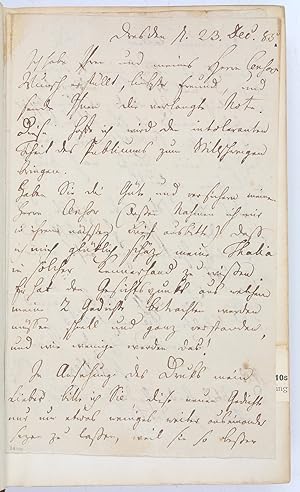 Dresden d. 23. Dec. 85.
Ich habe Ihren und meines Herrn Censors
Wunsch erfüllt, liebster Freund und
sende Ihnen die verlangte Note.
Diese hoffe ich wird den intoleranten
Theil des Publikums zum Stillschweigen
bringen.
Haben Sie die Güte, und versichern meinem
Herrn Censor (dessen Nahmen ich mir
in Ihrem nächsten Brief ausbitte) daß
er mich glücklich schätze meine Thalia
in solcher Kennerhand zu wissen.
Er hat den Gesichtspunkt aus welchem
meine 2 Gedichte betrachtet werden
müssen schnell und ganz verstanden,
und wie wenige werden das!
In Ansehung des Druks mein
Lieber bitte ich Sie diese neuen Gedichte
nur um etwas weniges weiter auseinander
setzen zu lassen, weil sie so besser
10s
ng